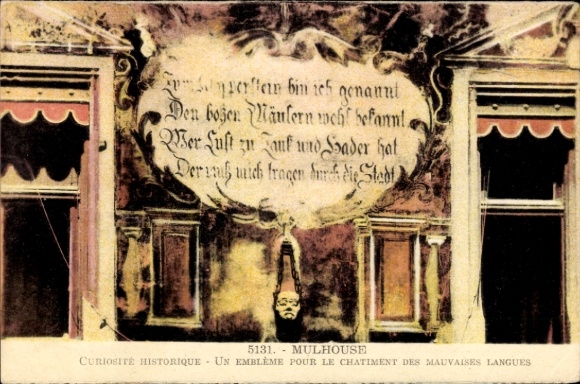 Zum Klapperstein bin ich genannt
Den boßen Mäulern wohl bekannt
Wer Lust zu Zank und Hader hat
Der muß mich tragen durch die Stadt
5131. - MULHOUSE
CURIOSITÉ HISTORIQUE - UN EMBLÈME POUR LE CHATIMENT DES MAUVAISES LANGUES